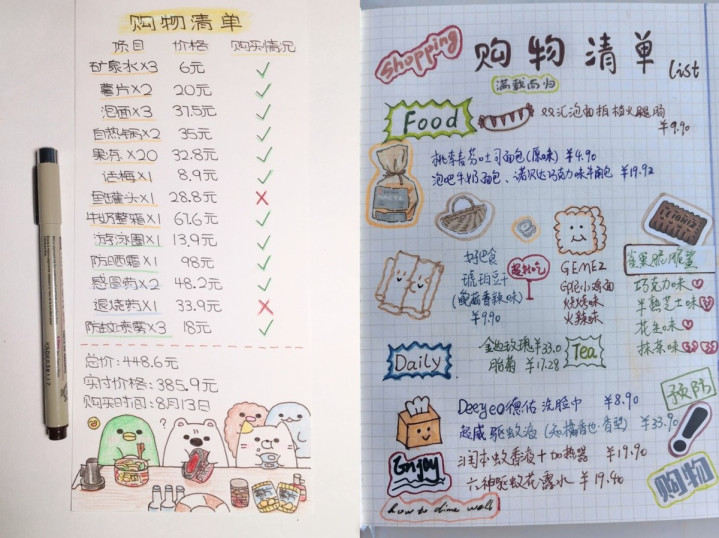 购物清单
项目 价格 购买情况
矿泉水×3 6元 ✓
薯片×2 20元 ✓
泡面×3 37.5元 ✓
自热锅×2 35元 ✓
果冻×20 32.8元 ✓
话梅×1 8.9元 ✓
鱼罐头×1 28.8元 ×
牛奶整箱×1 67.6元 ✓
游泳圈×1 13.9元 ✓
防晒霜×1 98元 ✓
感冒药×2 48.2元 ✓
退烧药×1 33.9元 ×
防蚊喷雾×3 18元 ✓
总价:448.6元
实付价格:385.9元
购买时间:8月13日
?
shopping
购物清单 list
满载而归
Food
双汇泡面拍档火腿肠
¥9.90
桃李醇芬吐司面包(原味) ¥4.90
泡吧牛奶面包、诺贝达巧克力味牛角包 ¥19.92
好肥食
琥珀豆干
¥9.90
超好吃
GEMEZ
小鸡面
烧烤味
火辣味
巧克力味
半熟芝士味
花生味
抹茶味
Daily
金边玫瑰 ¥33.0
脂菊 ¥17.28
Tea
预防
Deeyeo德佑 洗脸巾 ¥8.90
超威 驱蚊液 ¥33.90
Enjoy
润本蚊香液+加热器 ¥19.90
六神驱蚊花露水 ¥19.40
购物